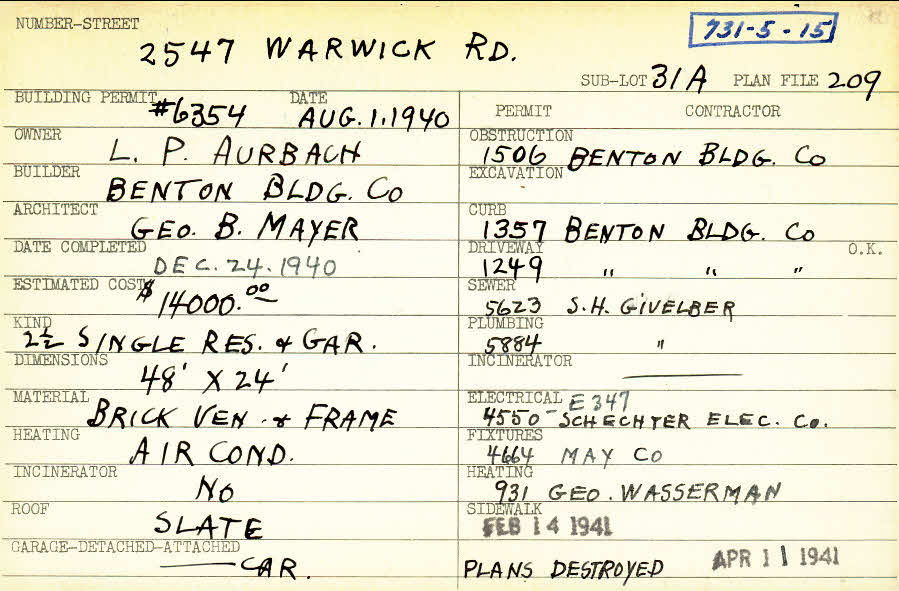 NUMBER-STREET
731-5-15
2547 WARWICK RD.
SUB-LOT 31A PLAN FILE 209
BUILDING PERMIT #6354 DATE AUG. 1, 1940
OWNER
L. P. AURBACH
BUILDER
BENTON BLDG. CO
ARCHITECT
GEO. B. MAYER
DATE COMPLETED
DEC. 24. 1940
ESTIMATED COST
$14000.00
KIND
2½ SINGLE RES. & GAR.
DIMENSIONS
48' X 24'
MATERIAL
BRICK VEN. & FRAME
HEATING
AIR COND.
INCINERATOR
NO
ROOF
SLATE
GARAGE-DETACHED-ATTACHED
CAR.
PERMIT CONTRACTOR
OBSTRUCTION
1506 BENTON BLDG. CO
EXCAVATION
CURB
1357 BENTON BLDG. CO
DRIVEWAY O.K.
1249 " " "
SEWER
5623 S.H. GIVELBER
PLUMBING
5884 "
INCINERATOR
ELECTRICAL E 347
4550 - SCHECHTER ELEC. CO.
FIXTURES
4664 MAY CO
HEATING
931 GEO. WASSERMAN
SIDEWALK
FEB 14 1941
PLANS DESTROYED APR 11 1941